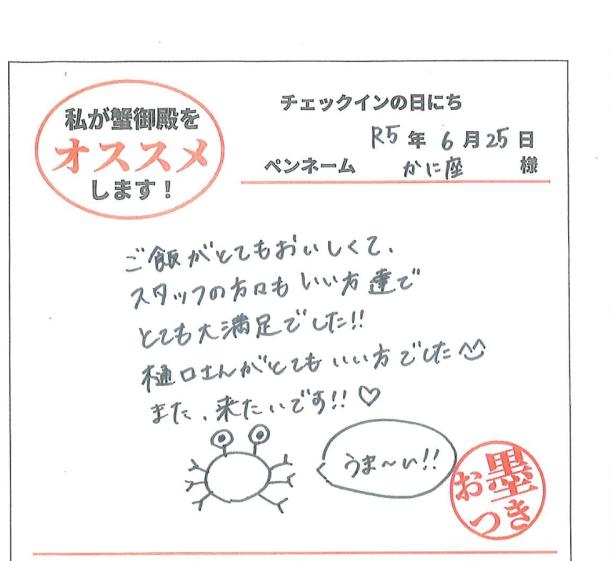 私が蟹御殿を
オススメ
します！
チェックインの日にち
R5年6月25日
ペンネーム かに座 様
ご飯がとてもおいしくて、
スタッフの方々もいい方達で
とても大満足でした!!
樋口さんがとてもいい方でした^^
また、来たいです!!♡
うま～い!!
お墨
つき